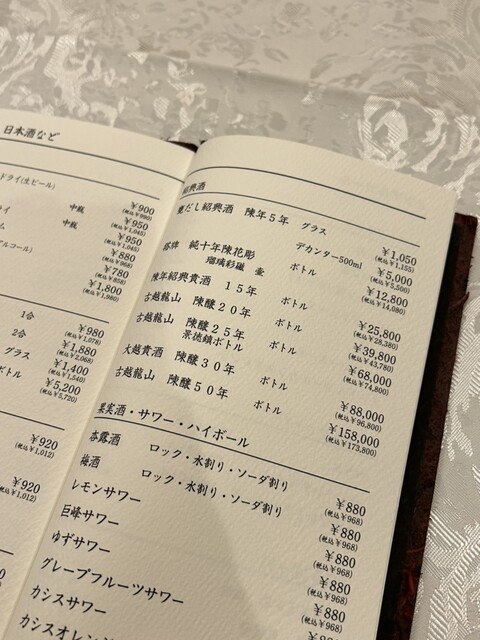 日本酒など
ドライ(生ビール)
中瓶 ¥900
(税込¥990)
中瓶 ¥950
(税込¥1,045)
¥950
(税込¥1,045)
¥880
(税込¥968)
¥780
(税込¥858)
¥1,800
(税込¥1,980)
1合 ¥980
(税込¥1,078)
2合 ¥1,880
(税込¥2,068)
グラス ¥1,400
(税込¥1,540)
ボトル ¥5,200
(税込¥5,720)
¥920
(税込¥1,012)
¥920
(税込¥1,012)
紹興酒
甕だし紹興酒 陳年5年 グラス ¥1,050
(税込¥1,155)
デカンター500ml ¥5,000
(税込¥5,500)
塔牌 純十年陳花彫
瑠璃彩磁 壷 ボトル ¥12,800
(税込¥14,080)
陳年紹興貴酒 15年 ボトル ¥25,800
(税込¥28,380)
古越龍山 陳醸20年 ボトル ¥39,800
(税込¥43,780)
古越龍山 陳醸25年
景徳鎮ボトル ボトル ¥68,000
(税込¥74,800)
大越貴酒 陳醸30年 ボトル ¥88,000
(税込¥96,800)
古越龍山 陳醸50年 ボトル ¥158,000
(税込¥173,800)
果実酒・サワー・ハイボール
杏露酒 ロック・水割り・ソーダ割り ¥880
(税込¥968)
梅酒 ロック・水割り・ソーダ割り ¥880
(税込¥968)
レモンサワー ¥880
(税込¥968)
巨峰サワー ¥880
(税込¥968)
ゆずサワー ¥880
(税込¥968)
グレープフルーツサワー
カシスサワー
カシスオレンジ